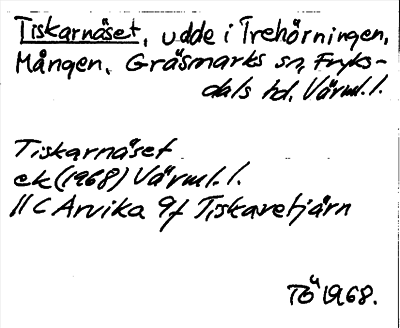 Tiskarnäset, udde i Trehörningen,
Mången, Gräsmarks sn, Fryks-
dals hd, Värml. l.
Tiskarnäset
ek (1968) Värml. l.
11 C Arvika 9f Tiskaretjärn
TÖ 1968.